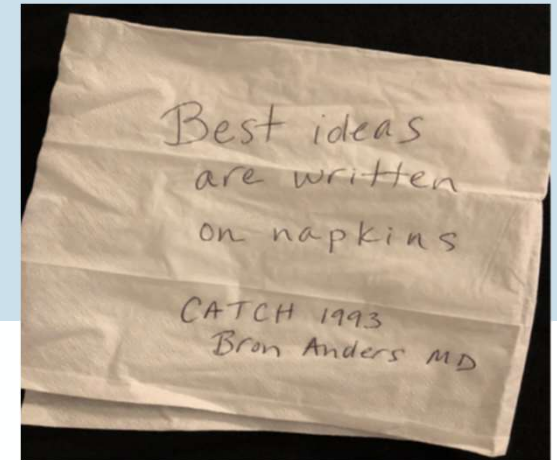 Best ideas
are written
on napkins
CATCH 1993
Bron Anders MD